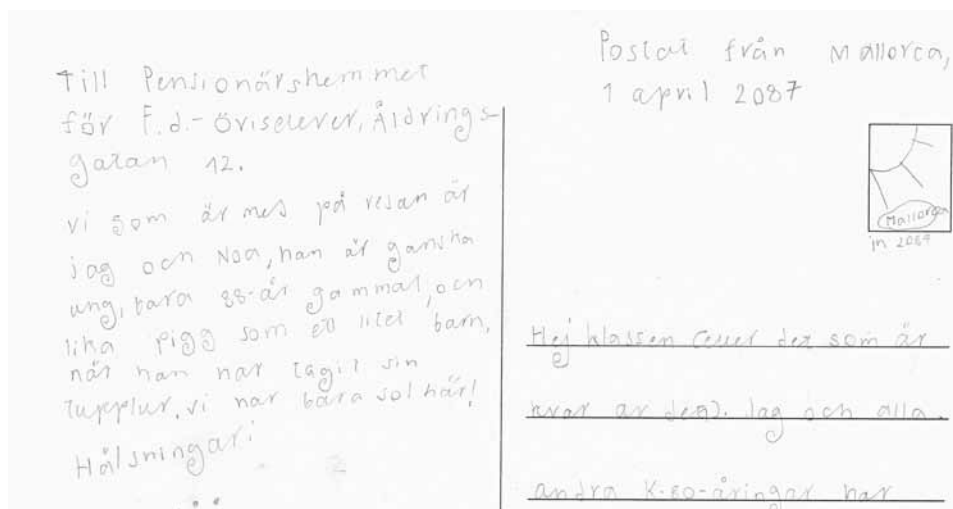 Till Pensionärshemmet
för F.d.-Öriselever, Åldrings-
gatan 12.
Vi som är med på resan är
jag och Noa, han är ganska
ung, bara 88-år gammal, och
lika pigg som ett litet barn,
när han har tagit sin
tupplur. Vi har bara sol här!
Hälsningar:
Postat från Mallorca,
1 april 2087
Mallorca
Hej klassen (eller det som är
kvar av den). Jag och alla
andra K-80-åringar har